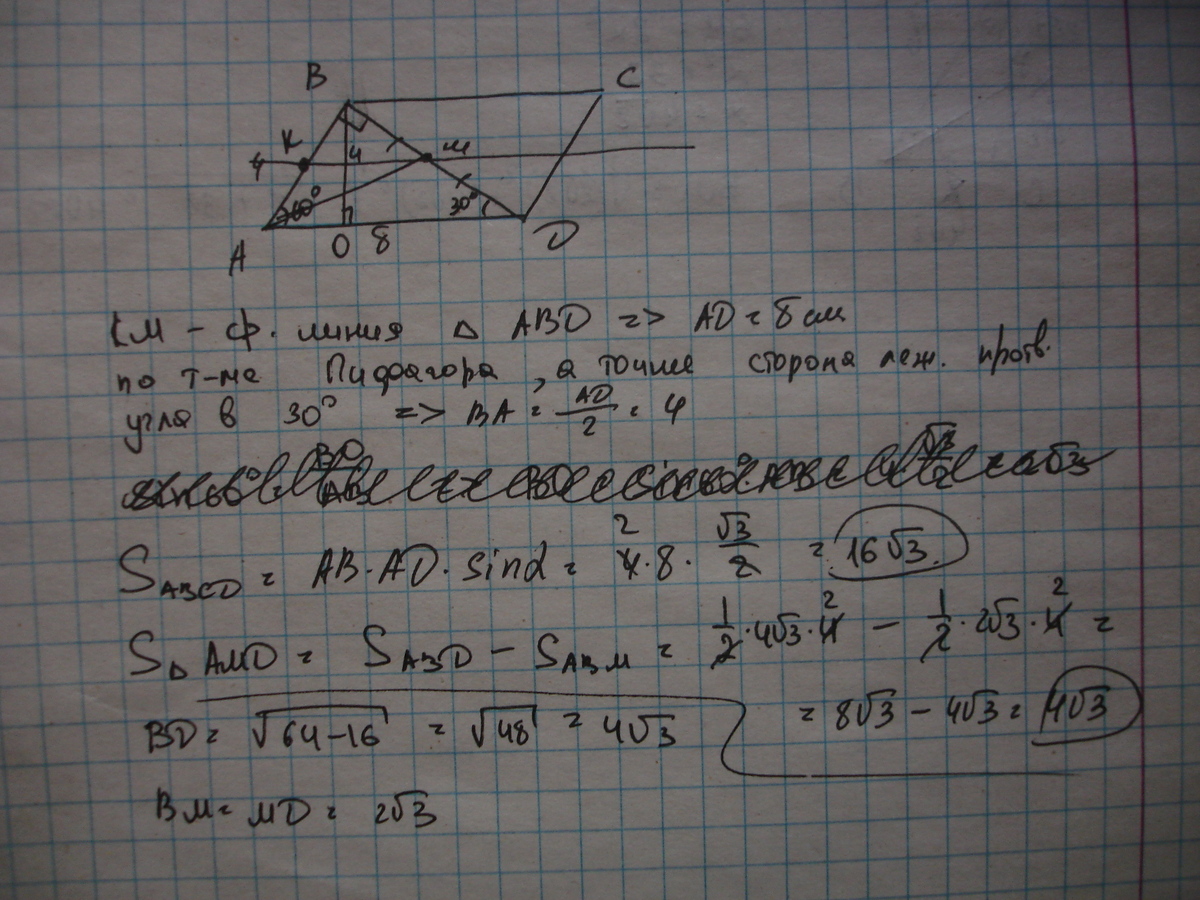 B C
K 4 M
60° 30°
A O 8 D
KM - ср. линия △ ABD => AD = 8 см
по т-ме Пифагора, а точнее сторона леж. протв.
угла в 30° => BA = AD/2 = 4
S_ABCD = AB·AD·sinα = 4·8·√3/2 = 16√3
S_△AMD = S_ABD - S_ABM = 1/2·4√3·4 - 1/2·2√3·4 =
= 8√3 - 4√3 = 4√3
BD = √64-16 = √48 = 4√3
BM = MD = 2√3